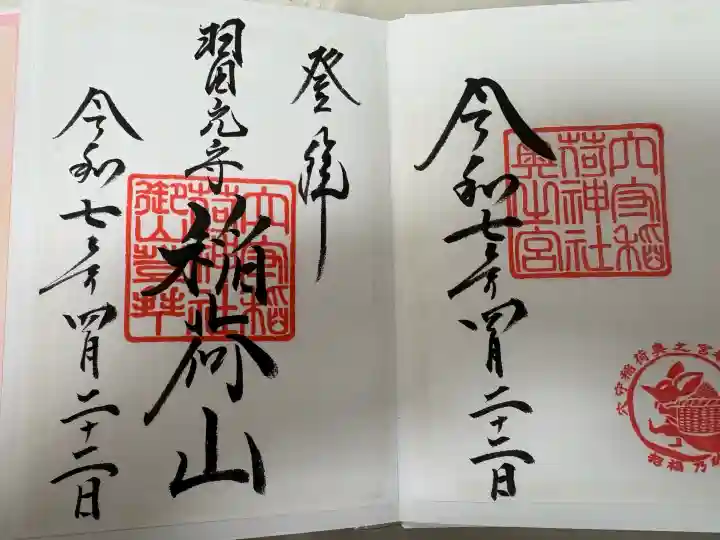 令和七年四月二十二日
穴守稲
荷神社
奥之宮
穴守稲荷奥之宮
招福乃
登拝
羽田穴守稲荷山
穴守稲
荷神社
御山登拝
令和七年四月二十二日